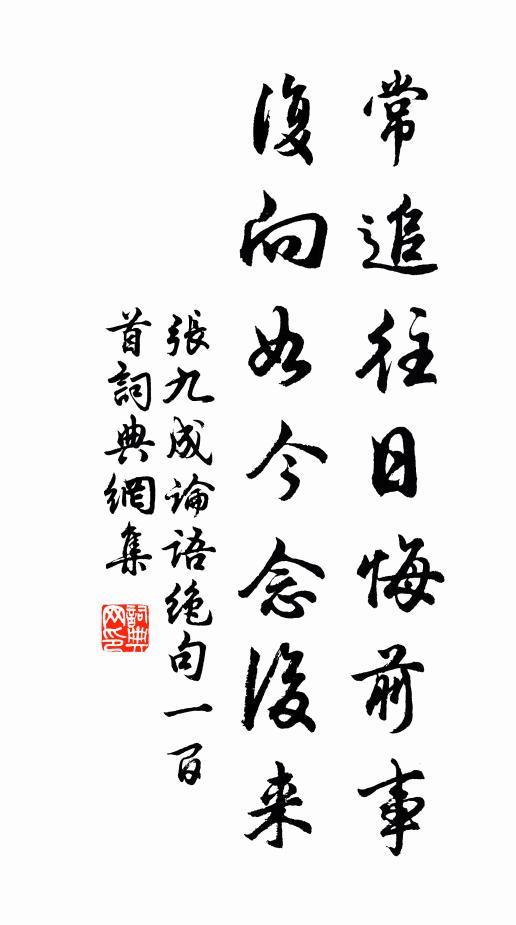 常追往日悔前事
復向如今念後来
張九成論語絶句一百
首詞典網集
詞典网印